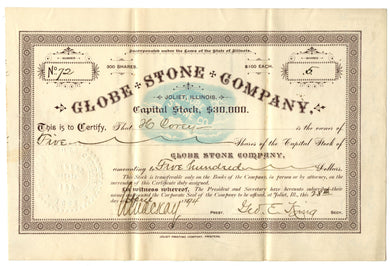 Incorporated under the Laws of the State of Illinois.
NUMBER
No 72
300 SHARES.
$100 EACH.
NUMBER
5
GLOBE STONE COMPANY,
JOLIET, ILLINOIS.
Capital Stock, $30,000.
This is to Certify, That H Corey is the owner of
Five Shares of the Capital Stock of
GLOBE STONE COMPANY,
amounting to Five hundred Dollars.
This Stock is transferable only on the Books of the Company in person or by attorney, on the
surrender of this Certificate duly assigned.
In witness whereof, The President and Secretary have hereunto subscribed their
names and caused the Corporate Seal of the Company to be affixed, at Joliet, Ill., this 28th
day of
PREST.
Geo. E. King
SECY.
JOLIET PRINTING COMPANY, PRINTERS.